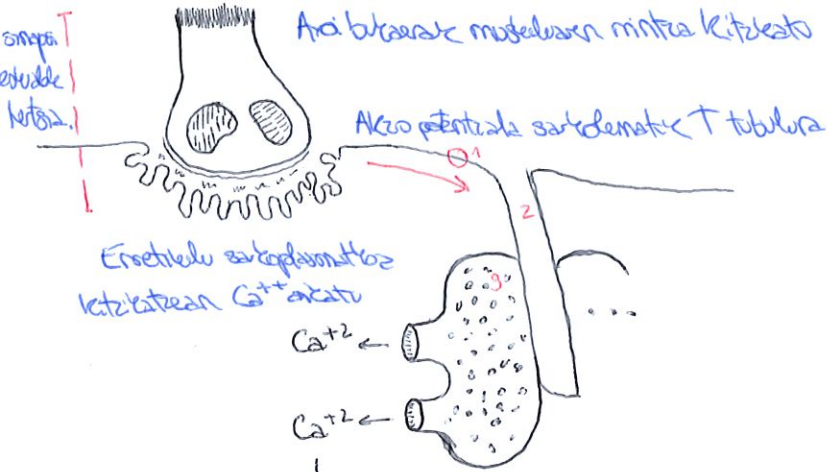 sinapsi
Axoi bukaerak muskuluaren mintza kitzikatu
Akzio potentziala sarkolematik T tubulura
1
2
Erretikulu sarkoplasmatikoa
3
kitzikatzean Ca⁺⁺ askatu
Ca⁺² ←
Ca⁺² ←